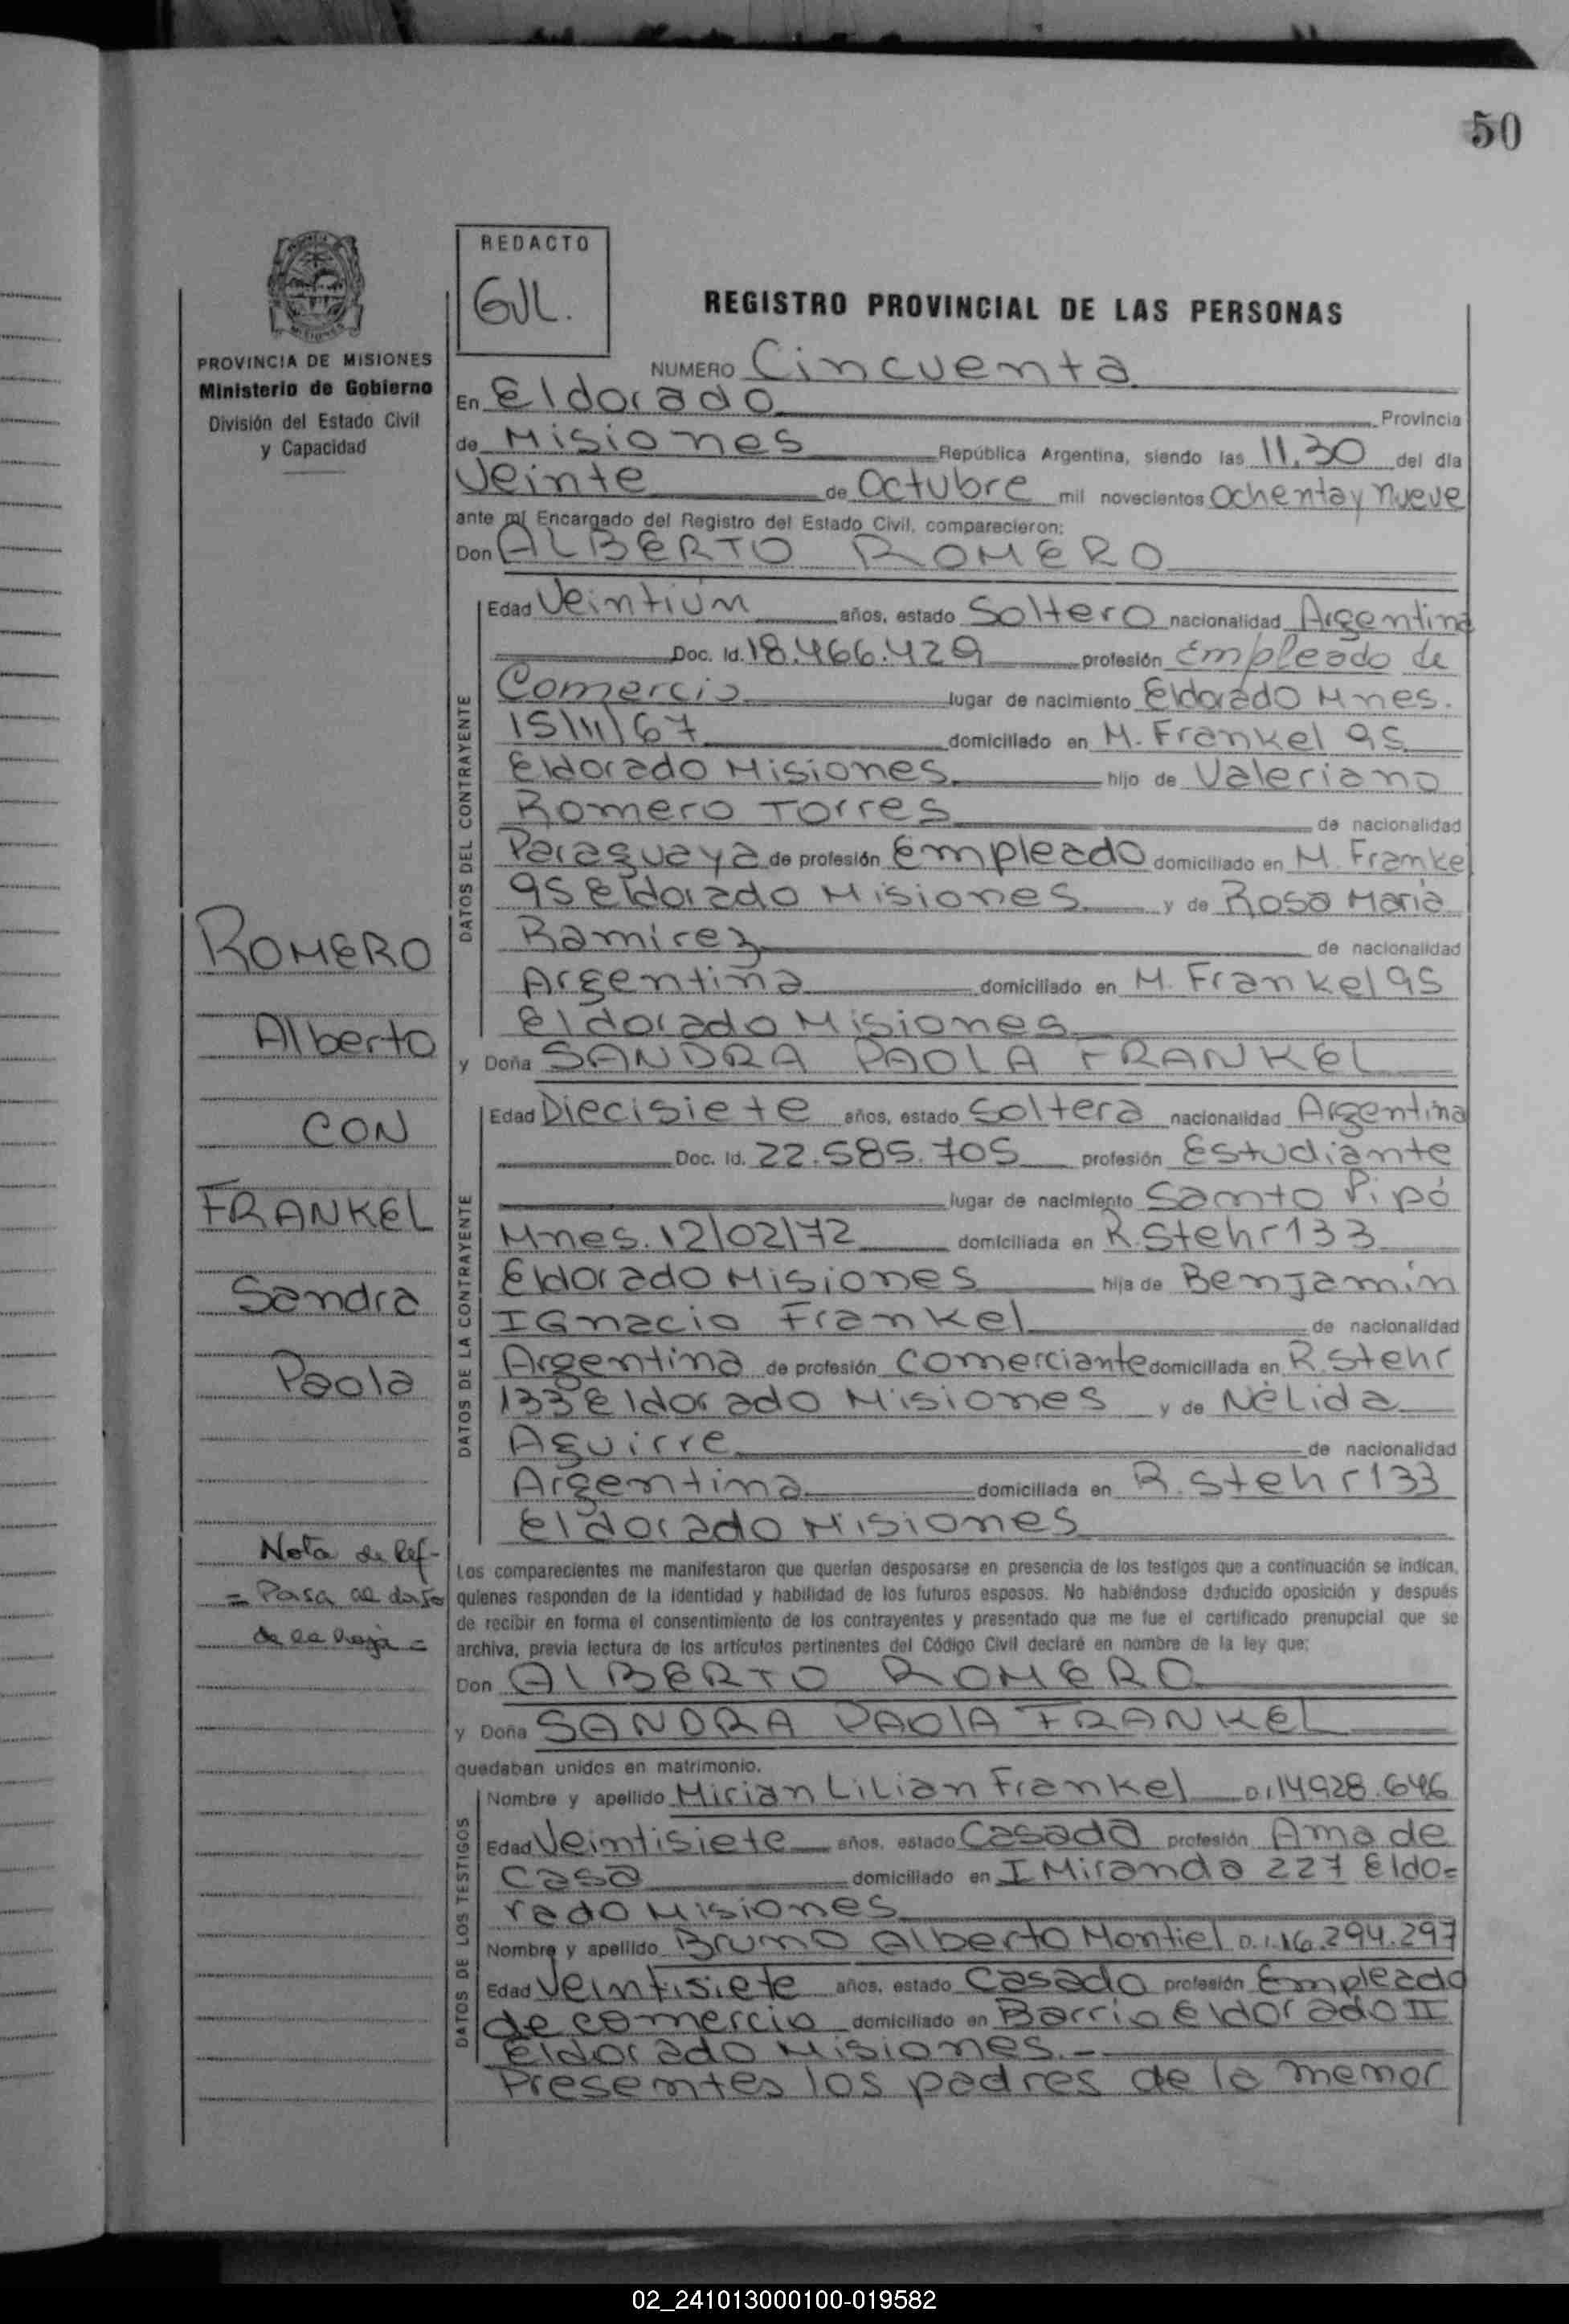 50
REDACTO
GVL.
REGISTRO PROVINCIAL DE LAS PERSONAS
PROVINCIA DE MISIONES
Ministerio de Gobierno
División del Estado Civil
y Capacidad
NUMERO Cincuenta
En Eldorado Provincia
de Misiones República Argentina, siendo las 11,30 del día
Veinte de Octubre mil novecientos ochenta y nueve
ante mí Encargado del Registro del Estado Civil, comparecieron:
Don ALBERTO ROMERO
Edad Veintiún años, estado Soltero nacionalidad Argentina
Doc. Id. 18.466.429 profesión Empleado de
Comercio lugar de nacimiento Eldorado Mnes.
15/11/67 domiciliado en M. Frankel 95
Eldorado Misiones hijo de Valeriano
Romero Torres de nacionalidad
Paraguaya de profesión Empleado domiciliado en M. Frankel
95 Eldorado Misiones y de Rosa María
Ramirez de nacionalidad
Argentina domiciliado en M. Frankel 95
Eldorado Misiones
DATOS DEL CONTRAYENTE
y Doña SANDRA PAOLA FRANKEL
Edad Diecisiete años, estado Soltera nacionalidad Argentina
Doc. Id. 22.585.705 profesión Estudiante
lugar de nacimiento Santo Pipó
Mnes. 12/02/72 domiciliada en R. Stehr 133
Eldorado Misiones hija de Benjamín
IGnacio Frankel de nacionalidad
Argentina de profesión Comerciante domiciliada en R. Stehr
133 Eldorado Misiones y de Nélida
Aguirre de nacionalidad
Argentina domiciliada en R. Stehr 133
Eldorado Misiones
DATOS DE LA CONTRAYENTE
ROMERO
Alberto
CON
FRANKEL
Sandra
Paola
Nota de Ref-
= Pasa al dorso
de la hoja =
Los comparecientes me manifestaron que querían desposarse en presencia de los testigos que a continuación se indican,
quienes responden de la identidad y habilidad de los futuros esposos. No habiéndose deducido oposición y después
de recibir en forma el consentimiento de los contrayentes y presentado que me fue el certificado prenupcial que se
archiva, previa lectura de los artículos pertinentes del Código Civil declaré en nombre de la ley que:
Don ALBERTO ROMERO
y Doña SANDRA PAOLA FRANKEL
quedaban unidos en matrimonio.
Nombre y apellido Mirian Lilian Frankel D.I 14928.646
Edad Veintisiete años, estado Casada profesión Ama de
Casa domiciliado en I Miranda 227 Eldo=
rado Misiones
Nombre y apellido Bruno Alberto Montiel D.I.16.294.297
Edad Veintisiete años, estado Casado profesión Empleado
de comercio domiciliado en Barrio Eldorado II
Eldorado Misiones.-
DATOS DE LOS TESTIGOS
Presentes los padres de la menor
02_241013000100-019582